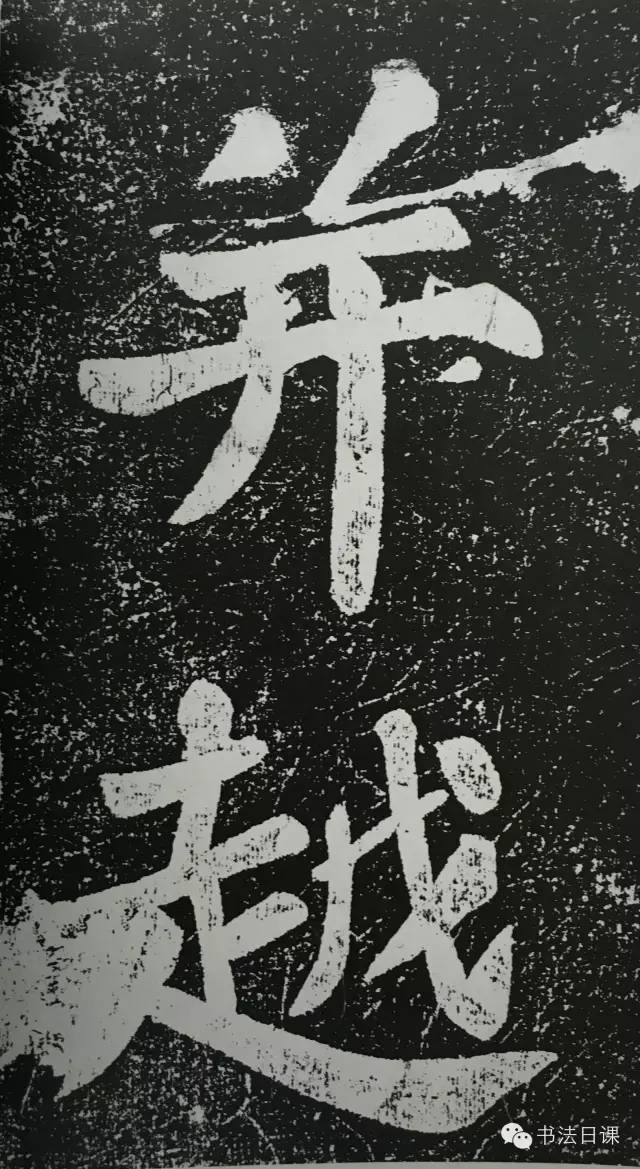 并
越
书法日课